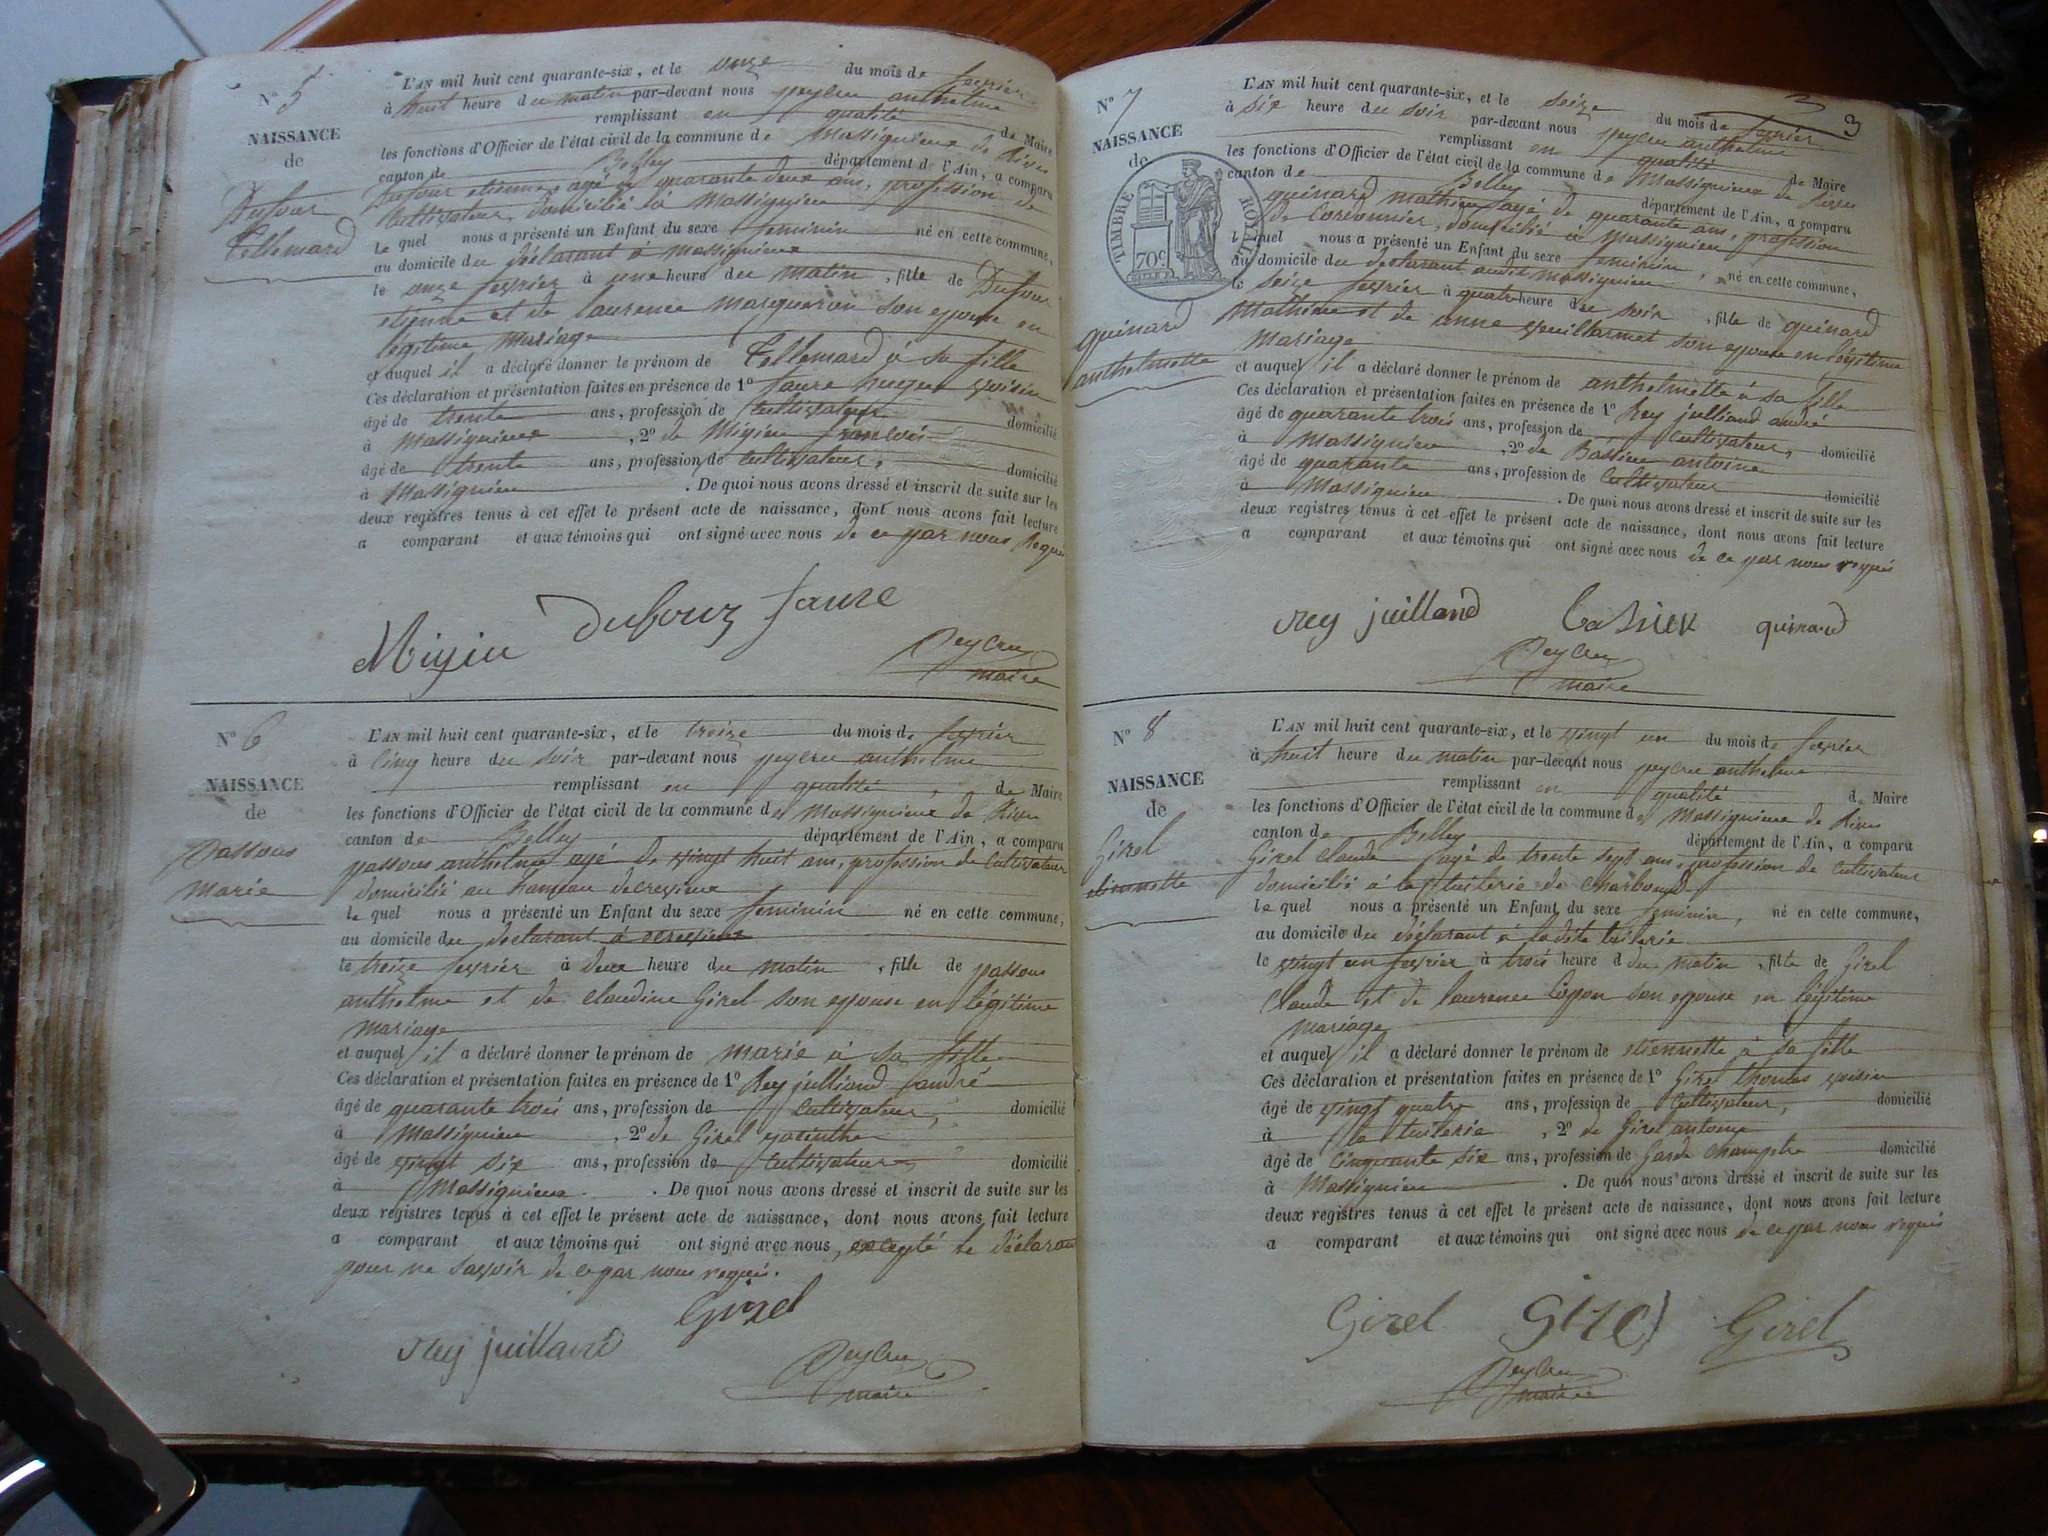 N° 5
NAISSANCE
de
Dufour
L'AN mil huit cent quarante-six, et le onze du mois de fevrier
à huit heure du matin par-devant nous peycru anthelme
remplissant en qualité de Maire
les fonctions d'Officier de l'état civil de la commune de Massignieux de Rives
canton de Belley département de l'Ain, a comparu
Dufour etienne, agé de quarante deux ans, profession de
Cultivateur, domicilié à Massignieu
le quel nous a présenté un Enfant du sexe feminin né en cette commune,
au domicile du déclarant à massignieux
le onze fevrier à une heure du matin, fille de Dufour
etienne et de laurence marqueron son epouse en
légitime mariage
et auquel il a déclaré donner le prénom de à sa fille
Ces déclaration et présentation faites en présence de 1° faure voisin
âgé de trente ans, profession de Cultivateur domicilié
à Massignieux, 2° de Migieu
âgé de trente ans, profession de cultivateur, domicilié
à Massignieu. De quoi nous avons dressé et inscrit de suite sur les
deux registres tenus à cet effet le présent acte de naissance, dont nous avons fait lecture
a comparant et aux témoins qui ont signé avec nous de ce par nous requis
Migieu Dufour faure
Peycru
maire
N° 6
NAISSANCE
de
Passous
marie
L'AN mil huit cent quarante-six, et le treize du mois de fevrier
à cinq heure du soir par-devant nous peycru anthelme
remplissant en qualité, de Maire
les fonctions d'Officier de l'état civil de la commune de Massignieux de Rives
canton de Belley département de l'Ain, a comparu
passous anthelme agé de vingt huit ans, profession de Cultivateur
domicilié au hameau de cresieux
le quel nous a présenté un Enfant du sexe feminin né en cette commune,
au domicile du declarant à
le treize fevrier à deux heure du matin, fille de passous
anthelme et de claudine Girel son epouse en légitime
mariage
et auquel il a déclaré donner le prénom de marie à sa fille
Ces déclaration et présentation faites en présence de 1° Rey julliand andré
âgé de quarante trois ans, profession de Cultivateur, domicilié
à Massignieu, 2° de Girel yacinthe
âgé de vingt six ans, profession de Cultivateur domicilié
à Massignieux. De quoi nous avons dressé et inscrit de suite sur les
deux registres tenus à cet effet le présent acte de naissance, dont nous avons fait lecture
a comparant et aux témoins qui ont signé avec nous, excepté le déclarant
pour ne savoir de ce par nous requis.
Girel
rey juilland
Peycru
maire
3
N° 7
NAISSANCE
de
TIMBRE ROYAL
70c
guinard
anthelmette
L'AN mil huit cent quarante-six, et le seize du mois de fevrier
à six heure du soir par-devant nous peycru anthelme
remplissant en qualité de Maire
les fonctions d'Officier de l'état civil de la commune de Massignieux de Rives
canton de Belley département de l'Ain, a comparu
guinard mathieu agé de quarante ans, profession
de Cordonnier, domicilié à Massignieu
le quel nous a présenté un Enfant du sexe feminin, né en cette commune,
au domicile du declarant audit massignieu
le seize fevrier à quatre heure du soir, fille de guinard
Mathieu et de anne son epouse en légitime
mariage
et auquel il a déclaré donner le prénom de anthelmette à sa fille
Ces déclaration et présentation faites en présence de 1° Rey julliand andré
âgé de quarante trois ans, profession de Cultivateur, domicilié
à Massignieu, 2° de Bassieu antoine
âgé de quarante ans, profession de Cultivateur domicilié
à Massignieu. De quoi nous avons dressé et inscrit de suite sur les
deux registres tenus à cet effet le présent acte de naissance, dont nous avons fait lecture
a comparant et aux témoins qui ont signé avec nous de ce par nous requis
rey juilland guinard
Peycru
maire
N° 8
NAISSANCE
de
Girel
etiennette
L'AN mil huit cent quarante-six, et le vingt un du mois de fevrier
à huit heure du matin par-devant nous peycru anthelme
remplissant en qualité de Maire
les fonctions d'Officier de l'état civil de la commune de Massignieux de Rives
canton de Belley département de l'Ain, a comparu
Girel claude agé de trente sept ans, profession de Cultivateur
domicilié à la tuilerie de
le quel nous a présenté un Enfant du sexe feminin, né en cette commune,
au domicile du déclarant à ladite tuilerie
le vingt un fevrier à trois heure d du matin, fille de Girel
Claude et de laurence son epouse en légitime
mariage
et auquel il a déclaré donner le prénom de etiennette à sa fille
Ces déclaration et présentation faites en présence de 1° Girel thomas voisin
âgé de vingt quatre ans, profession de Cultivateur, domicilié
à la tuilerie, 2° de Girel antoine
âgé de cinquante six ans, profession de Garde champetre domicilié
à Massignieu. De quoi nous avons dressé et inscrit de suite sur les
deux registres tenus à cet effet le présent acte de naissance, dont nous avons fait lecture
a comparant et aux témoins qui ont signé avec nous de ce par nous requis
Girel Girel Girel
Peycru
maire